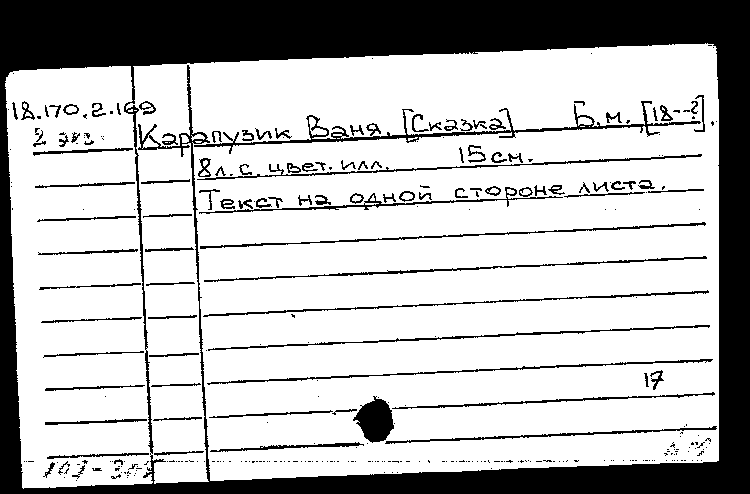 18.170.2.169
2 экз. Карапузик Ваня. [Сказка] Б.м. [18--?].
8л. с. цвет. илл. 15 см.
Текст на одной стороне листа.
17